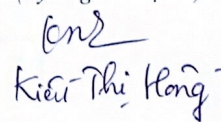 Kiều Thị Hồng